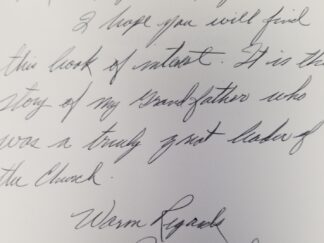 I hope you will find
this book of interest. It is the
story of my Grandfather who
was a truly great leader of
the Church.
Warm Regards